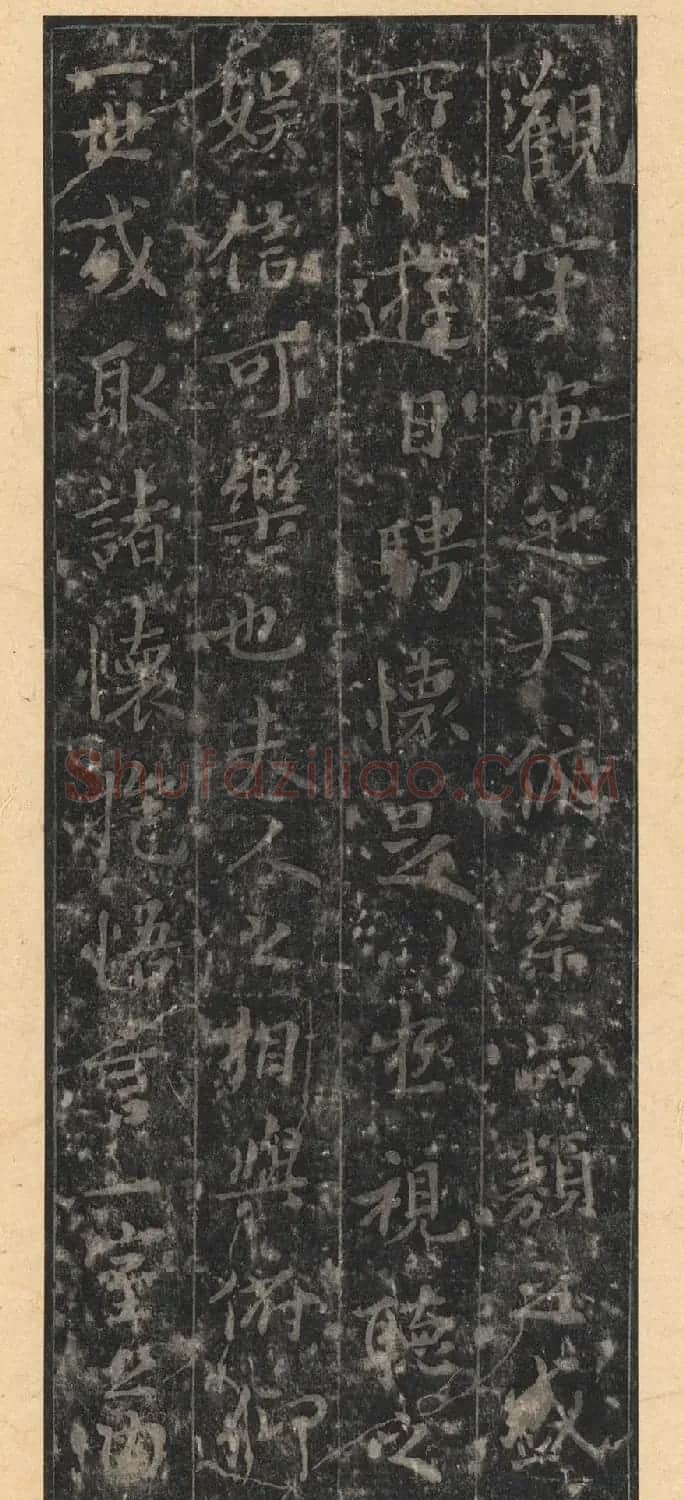 觀宇宙之大俯察品類之盛
所以遊目騁懷足以極視聽之
娛信可樂也夫人之相與俯仰
一世或取諸懷抱悟言一室之內
Shufaziliao.COM